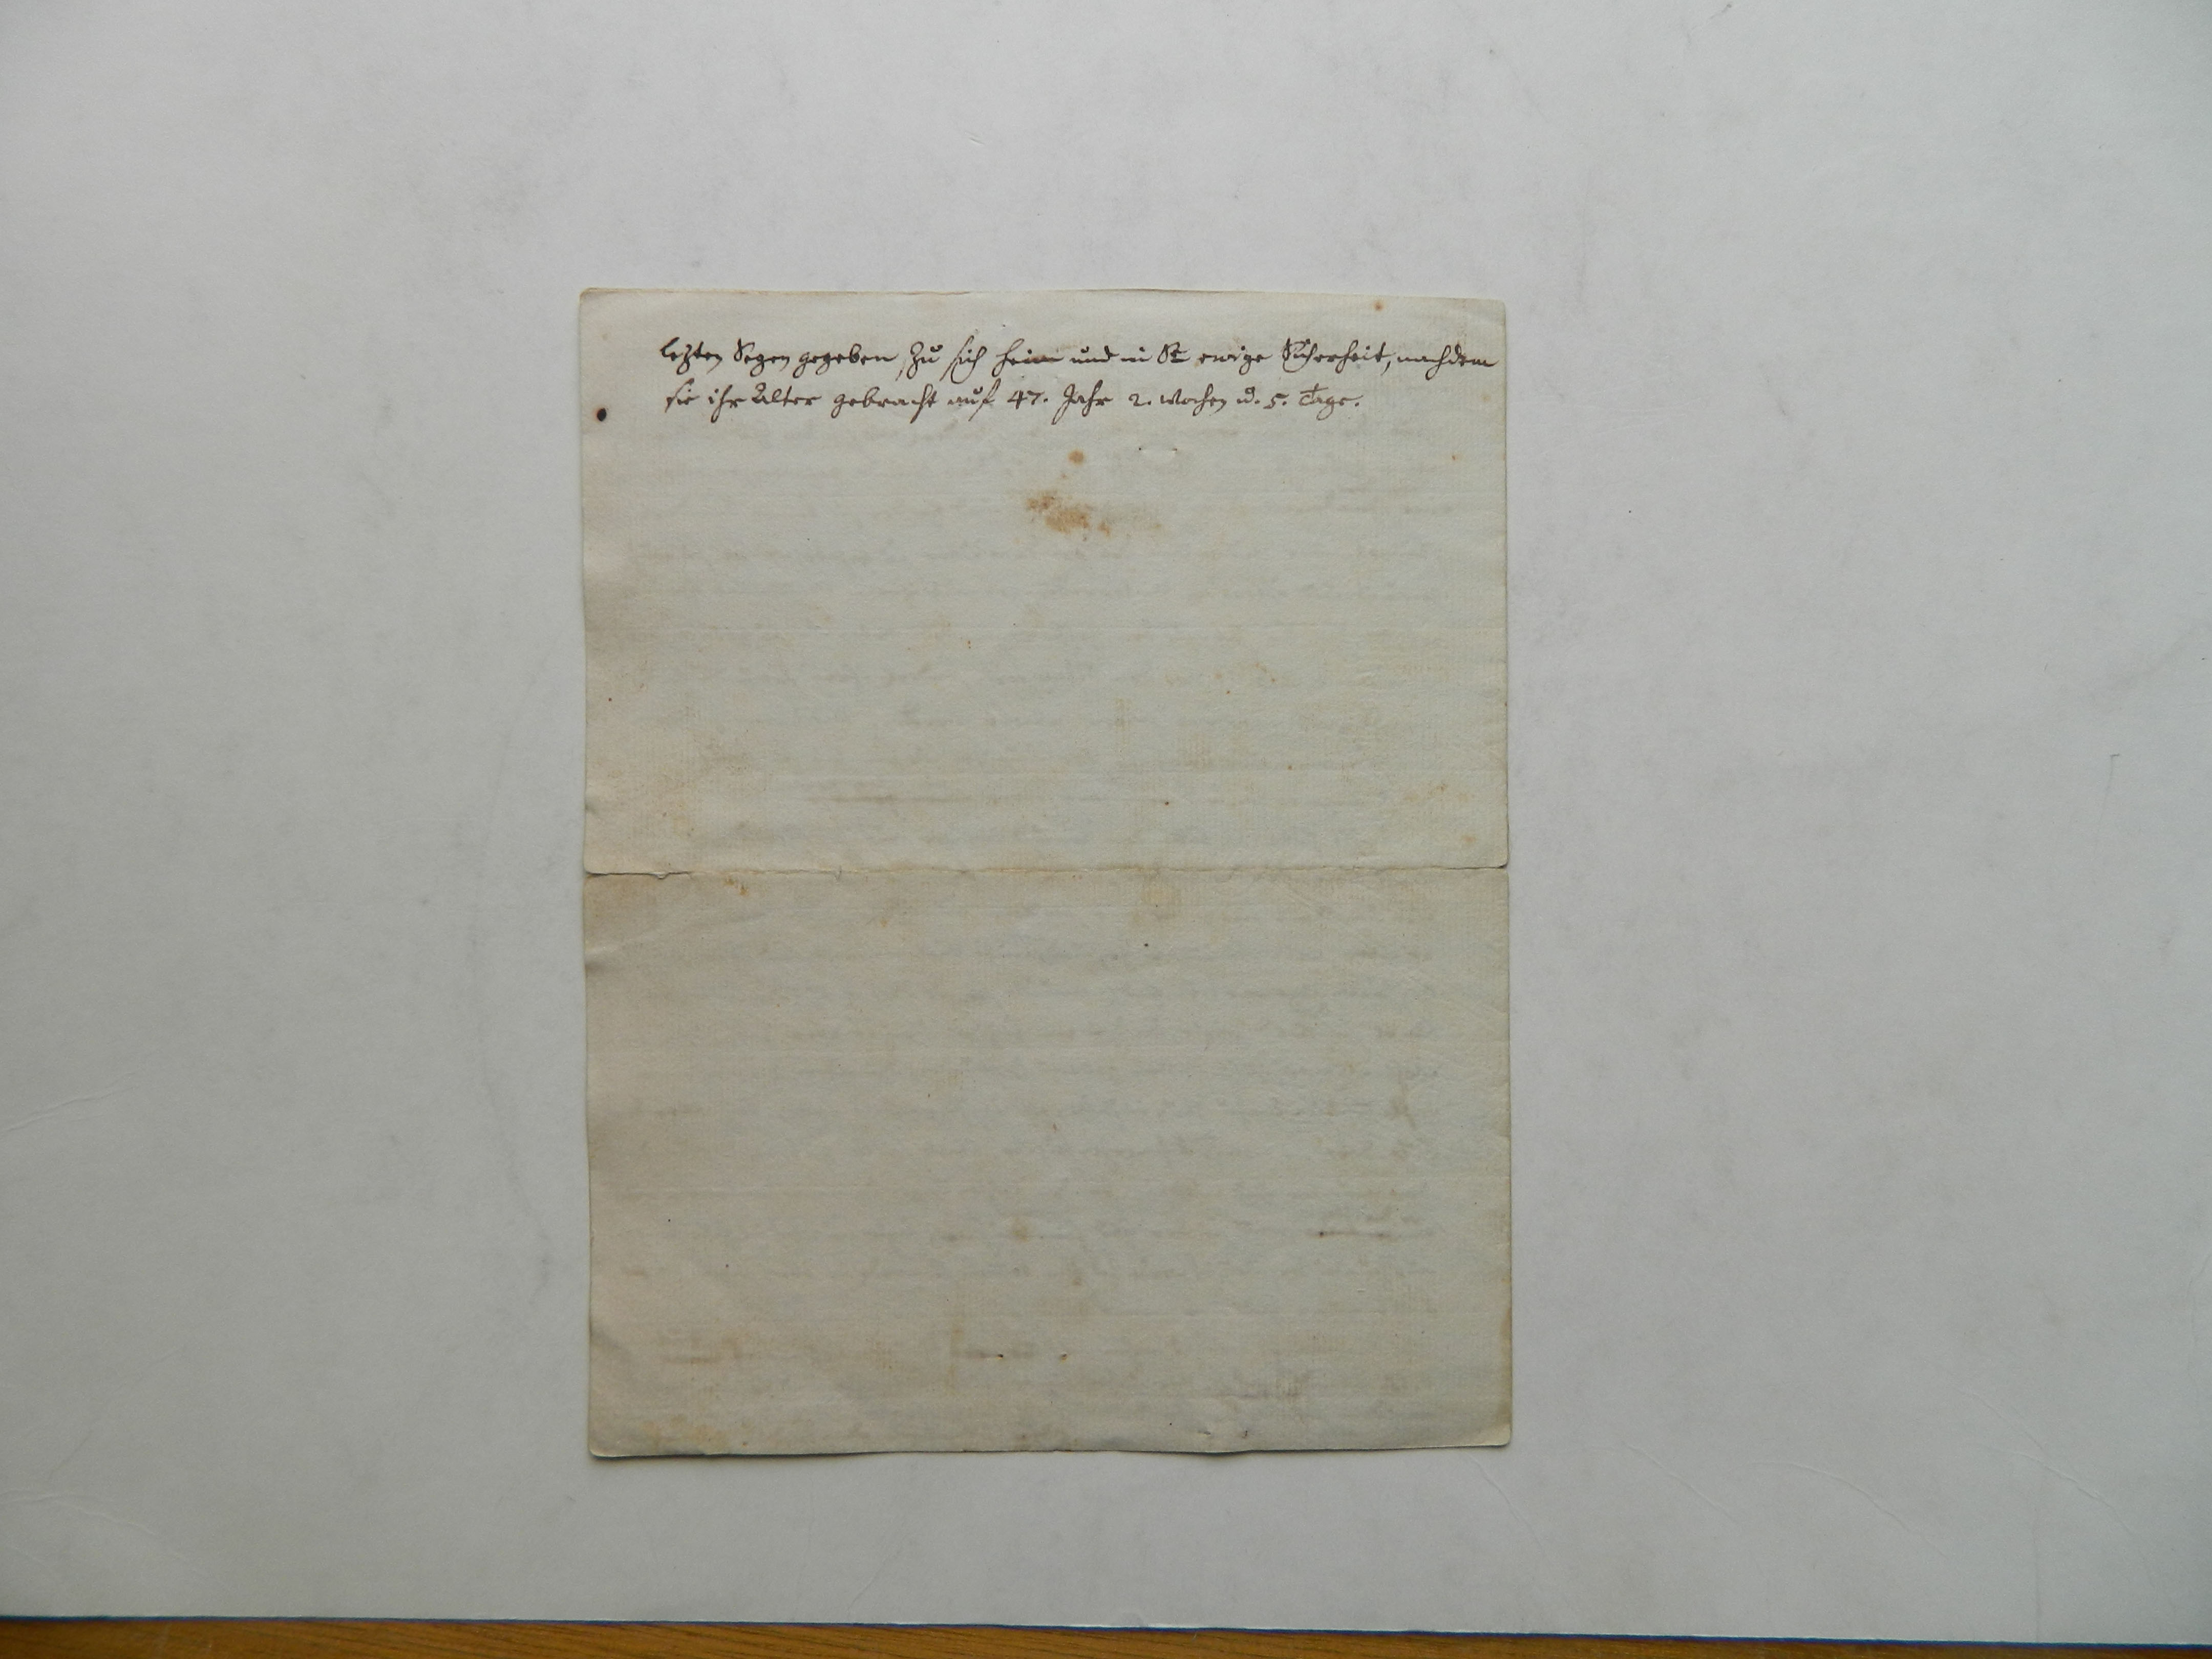 lezten Segen gegeben, zu sich heim und in Se ewige Sicherheit, nachdem
sie ihr Alter gebracht auf 47. Jahr 2. Wochen u. 5. Tage.